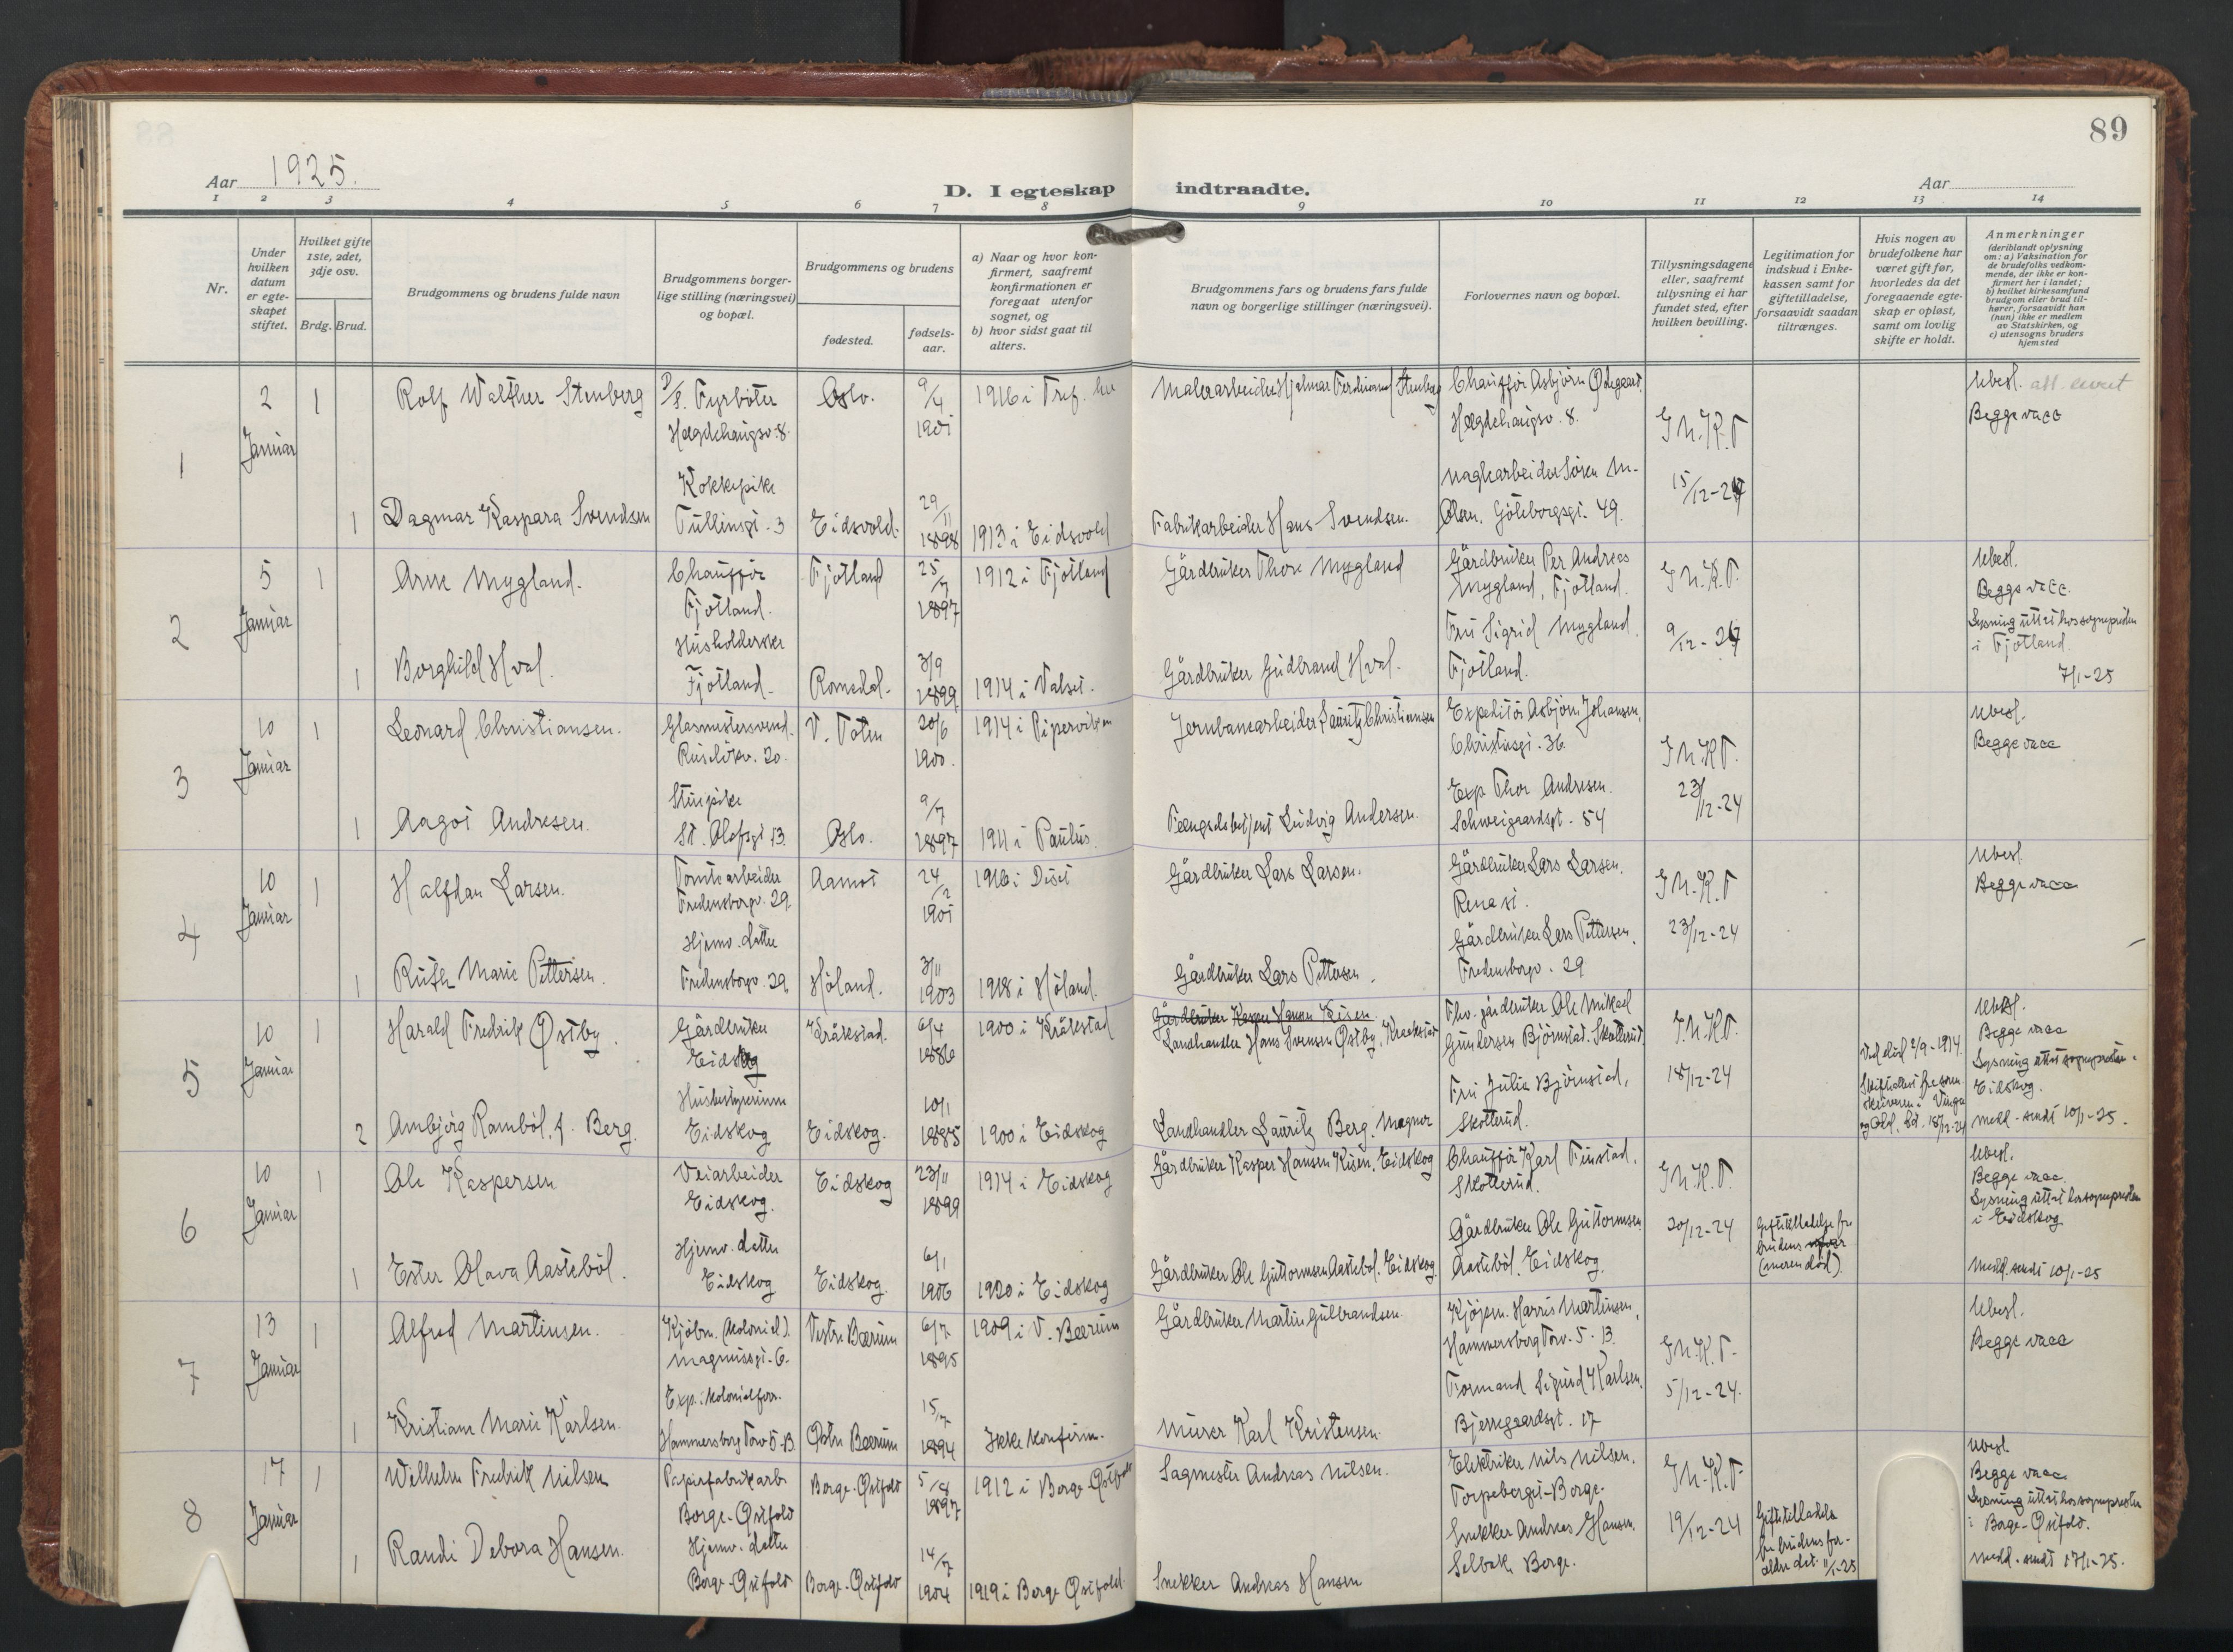 89
Aar 1925.
D. I egteskap indtraadte.
Aar
1 2 3 4 5 6 7 8 9 10 11 12 13 14
Nr.
Under hvilken datum er egte-skapet stiftet.
Hvilket gifte 1ste, 2det, 3dje osv.
Brdg. Brud.
Brudgommens og brudens fulde navn
Brudgommens borger-lige stilling (næringsvei) og bopæl.
Brudgommens og brudens
fødested.
fødsels-aar.
a) Naar og hvor kon-firmert, saafremt konfirmationen er foregaat utenfor sognet, og
b) hvor sidst gaat til alters.
Brudgommens fars og brudens fars fulde navn og borgerlige stillinger (næringsvei).
Forlovernes navn og bopæl.
Tillysningsdagene eller, saafremt tillysning ei har fundet sted, efter hvilken bevilling.
Legitimation for indskud i Enke-kassen samt for giftetilladelse, forsaavidt saadan tiltrænges.
Hvis nogen av brudefolkene har været gift før, hvorledes da det foregaaende egte-skap er opløst, samt om lovlig skifte er holdt.
Anmerkninger
(deriblandt oplysning om: a) Vaksination for de brudefolks vedkom-mende, der ikke er kon-firmert her i landet; b) hvilket kirkesamfund brudgom eller brud til-hører, forsaavidt han (hun) ikke er medlem av Statskirken, og c) utensogns bruders hjemsted
1
2 Januar
1 Rolf Walther Stenberg
Fyrbøter
Hægdehaugsv. 8.
Oslo.
9/4 1901
1916 i Tref.
Malerarbeider Hjalmar Ferdinand Stenberg
Chauffør Asbjørn Ødegaard.
Hægdehaugsv. 8.
J N. K. T
15/12-24
Ubesl.
Begge vacc
1 Dagmar Kaspara Svendsen
Kokkepike
Tullinsgt. 3
Eidsvold.
29/11 1898
1913 i Eidsvold
Fabrikarbeider Hans Svendsen.
Olsen. Göteborgsgt. 49.
2
5 Januar
1 Arne Mygland.
Chauffør
Fjotland.
Fjotland
25/7 1897
1912 i Fjotland
Gårdbruker Thore Mygland
Gårdbruker Per Andreas
Mygland, Fjotland.
J N. K. T.
9/12-24
Ubesl.
Begge vacc.
i Fjotland
7/1-25
1 Borghild Hval.
Husholderske
Fjotland.
Romedal.
3/9 1899
1914 i Valset.
Gårdbruker Gudbrand Hval.
Fru Sigrid Mygland.
Fjotland.
3
10 Januar
1 Leonard Christiansen.
Glasmestersvend.
Ruseløkv. 20.
V. Toten
20/6 1900.
1914 i Piperviken
Jernbanearbeider Lauritz Christiansen
Expeditør Asbjørn Johansen.
Christusgt. 36.
J N. K T.
23/12-24
Ubesl.
Begge vacc
1 Aagot Andresen.
Stuepike
St. Olafsgt 13.
Oslo.
9/7 1897
1911 i Paulus.
Fængselsbetjent Ludvig Andersen.
Exp. Thor Andresen.
Schweigaardsgt. 54
4
10 Januar
1 Halfdan Larsen.
Tomtearbeider
Fredensborgv. 29.
Aamot
24/2 1901
1916 i Deset
Gårdbruker Lars Larsen.
Gårdbruker Lars Larsen.
Rena st.
J N. K. T
23/12-24
Ubesl.
Begge vacc
1 Ruth Marie Pettersen.
Hjemv. datter
Fredensborgv. 29.
Høland.
3/11 1903
1918 i Høland.
Gårdbruker Lars Pettersen.
Gårdbruker Lars Pettersen.
Fredensborgv. 29
5
10 Januar
1 Harald Fredrik Østby.
Gårdbruker
Eidskog
Kråkstad.
6/4 1886
1900 i Kråkstad
Gårdbruker Kasper Hansen Risen.
Landhandler Hans Svensen Østby, Kraakstad
Fhv. gårdbruker Ole Mikael
Gundersen Bjørnstad. Skotterud.
J N. K T.
18/12-24
Ved død 2/9-1914.
Ubesl.
Begge vacc
Eidskog.
medd. sendt 10/1-25.
2 Ambjørg Rambøl, f. Berg.
Husbestyrerinne
Eidskog
Eidskog.
10/1 1885
1900 i Eidskog
Landhandler Lauritz Berg. Magnor
Fru Julie Bjørnstad,
Skotterud.
6
10 Januar
1 Ole Kaspersen
Veiarbeider
Eidskog.
Eidskog
23/11 1899
1914 i Eidskog
Gårdbruker Kasper Hansen Risen, Eidskog
Chauffør Karl Finstad.
Skotterud.
J N. K. T.
20/12-24
Giftetilladelse fra
brudens
(moren død).
Ubesl.
Begge vacc.
Lysning uttat hos sogneprest
i Eidskog
Medd. sendt 10/1-25
1 Ester Olava Aastebøl.
Hjemv. datter
Eidskog
Eidskog.
6/1 1906
1920 i Eidskog
Gårdbruker Ole Guttormsen Aastebøl. Eidskog.
Gårdbruker Ole Guttormsen
Aastebøl. Eidskog.
7
13 Januar
1 Alfred Martinsen.
Kjøbm. (kolonial).
Magnussgt. 6.
Vestre Bærum
6/7 1895
1909 i V. Bærum
Gårdbruker Martin Gulbrandsen.
Kjøpm. Harris Martinsen,
Hammersborg Torv. 5. B.
J N. K. T.
5/12-24.
Ubesl.
Begge vacc
1 Kristiane Marie Karlsen.
Exp. i kolonialforr.
Hammersborg Torv 5-B.
Østre Bærum
15/7 1894
Ikke konfirm.
Murer Karl Kristensen.
Formand Sigurd Karlsen.
Bjerregaardsgt. 17
8
17 Januar
1 Wilhelm Fredrik Nilsen
Papirfabrikarb.
Borge-Østfold
Borge-Østfold
5/8 1897
1912 i Borge Østfold
Sagmester Andreas Nilsen.
Elektriker Nils Nilsen.
Torpeberget-Borge.
J N. K. T.
19/12-24
Giftetilladelse
fra brudens for-
ældre dat. 11/1-25
Ubesl.
Begge vacc
Lysning uttat hos sogneprest
i Borge-Østfold.
medd. sendt 17/1-25.
1 Randi Debora Hansen.
Hjemv. datter
Borge-Østfold
Borge-Østfold
14/7 1904
1919 i Borge Østfold.
Snekker Andreas Hansen
Snekker Andreas Hansen.
Selbak, Borge.